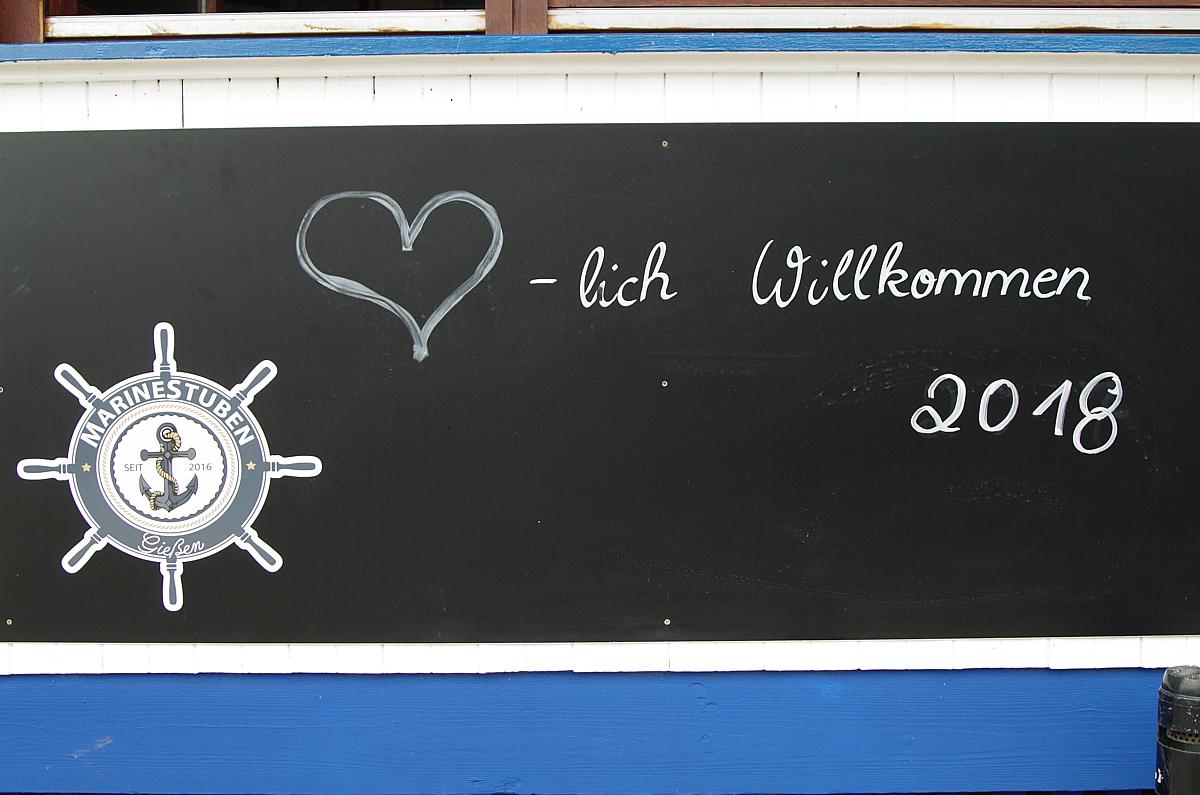 -lich Willkommen
2018
MARINESTUBEN
SEIT 2016
Gießen